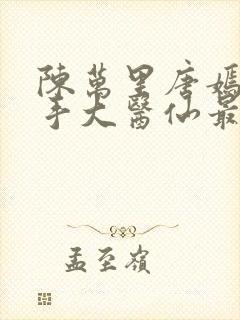 陳萬里唐嫣
手大醫仙最
孟至嶺